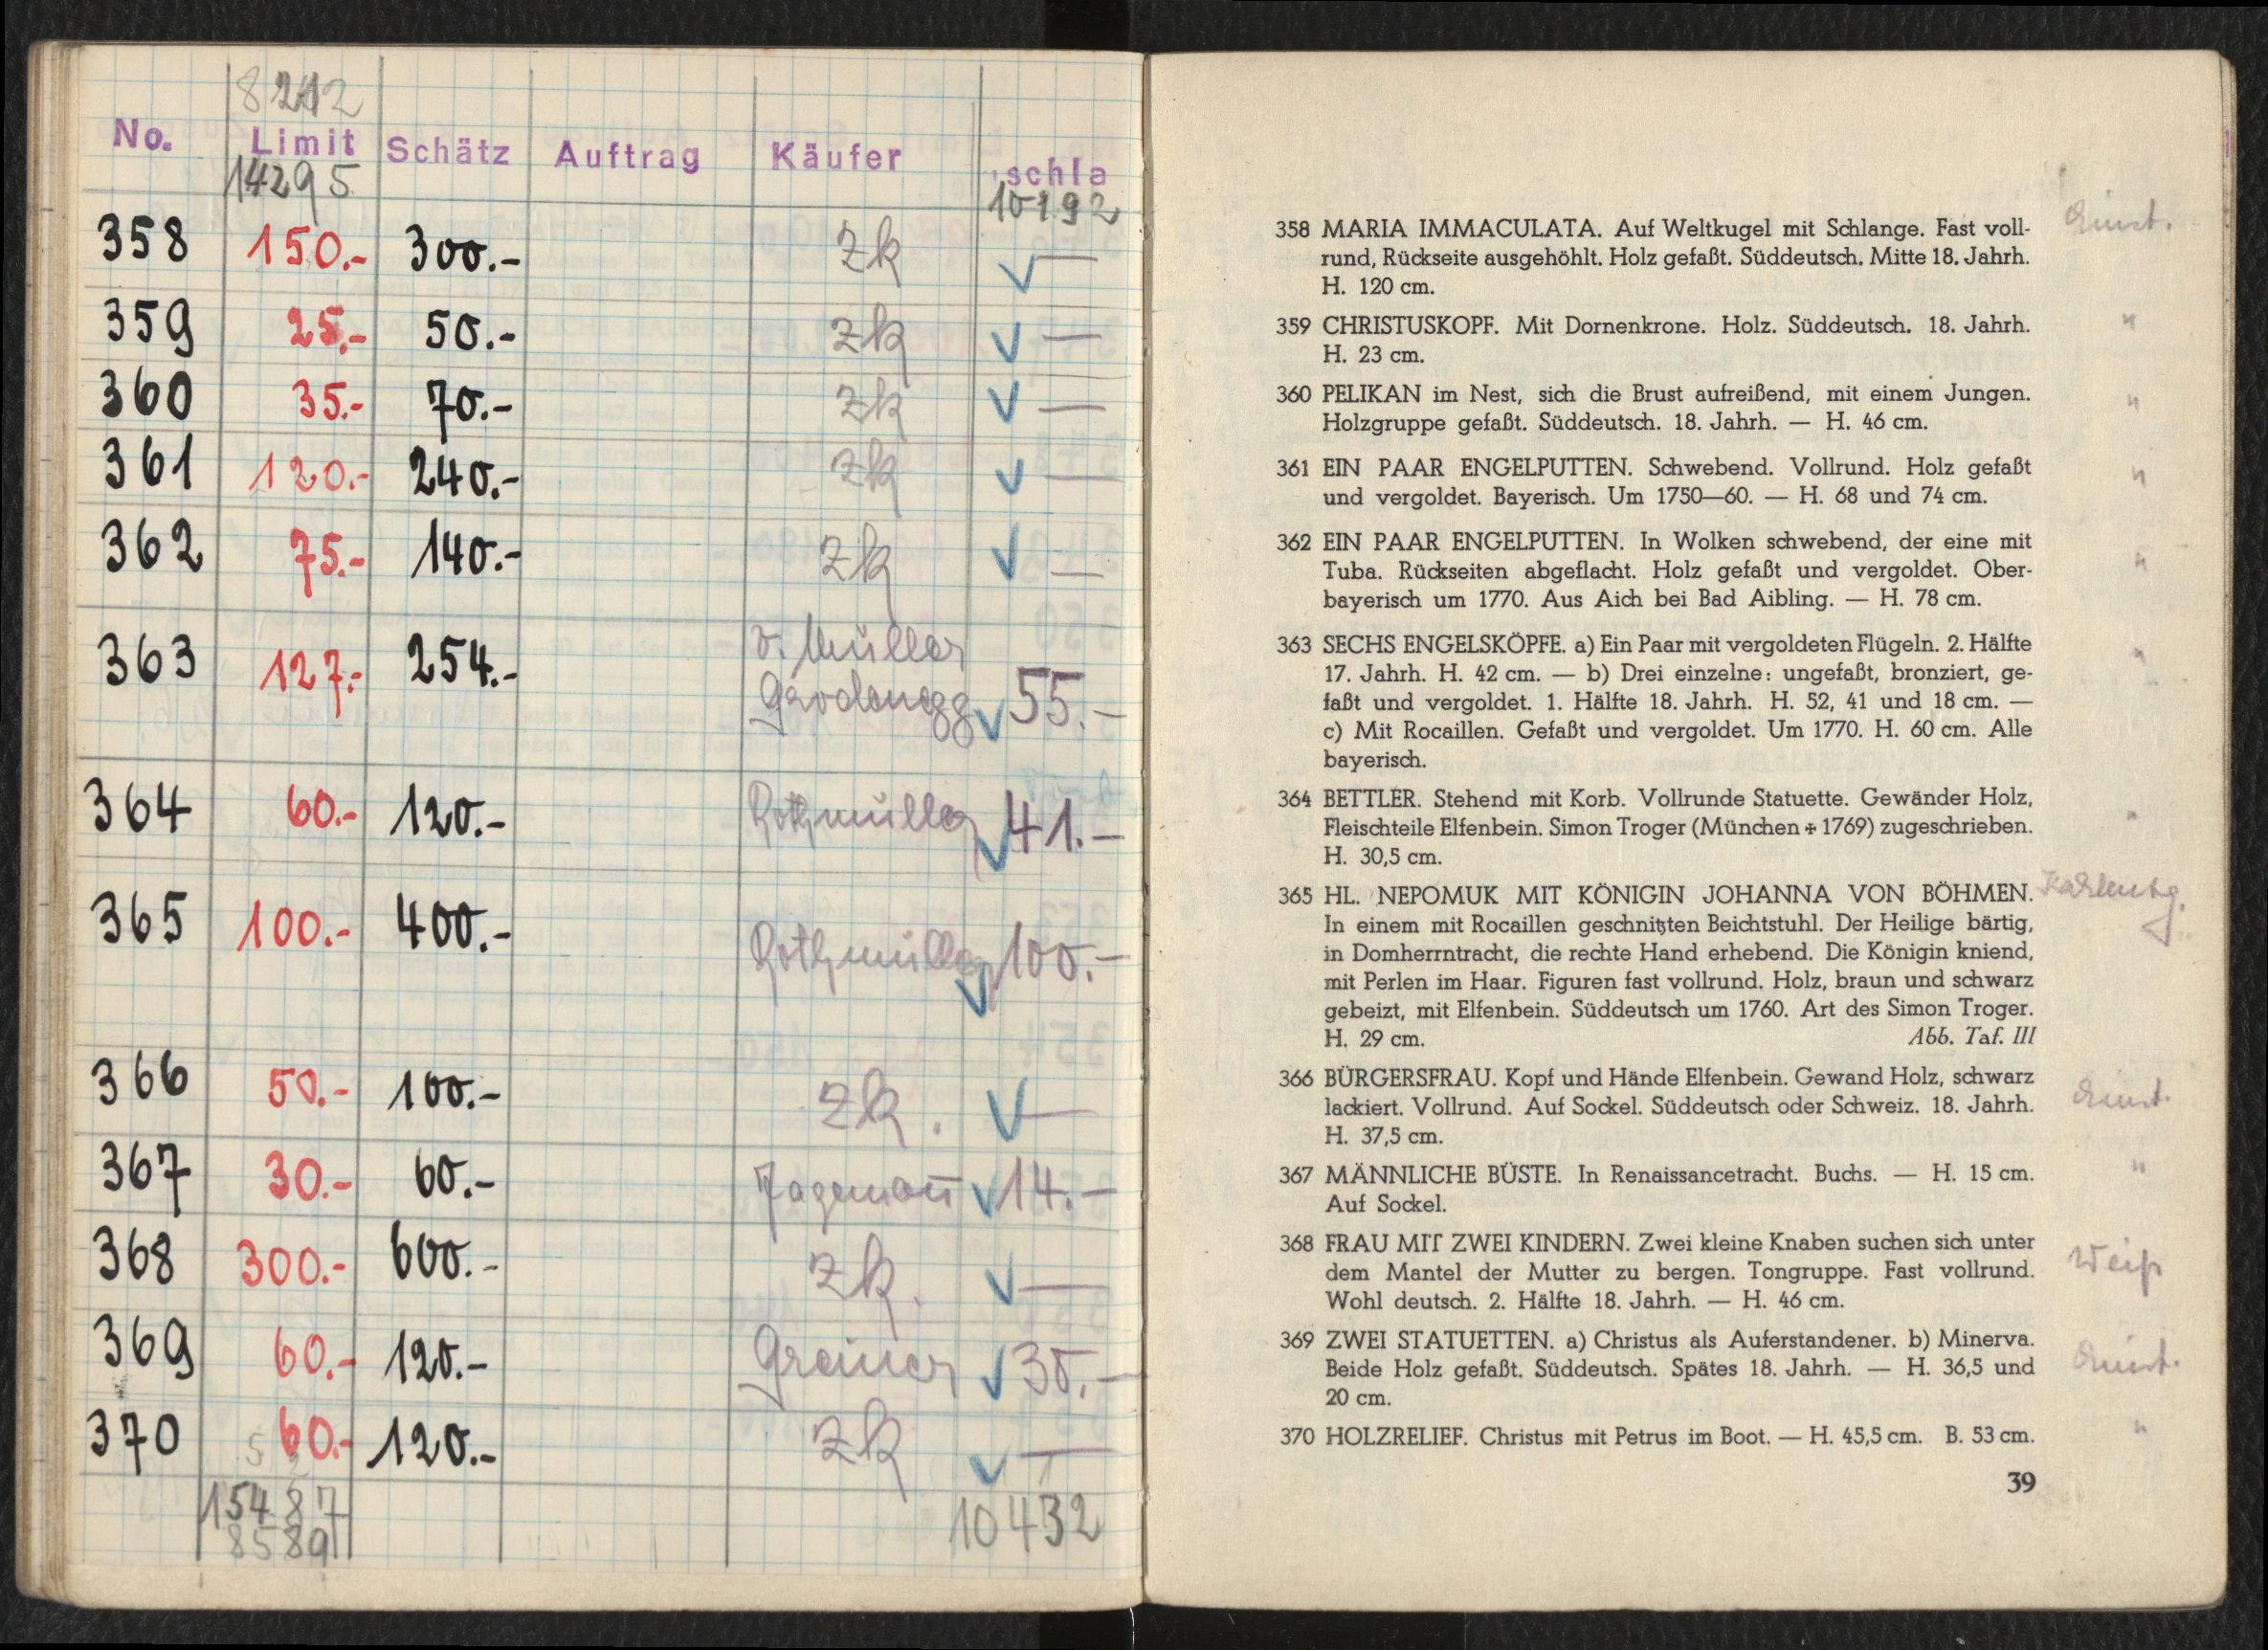 8212
No. Limit Schätz Auftrag Käufer schla
14295 10192
358 150.- 300.- zk —
359 25.- 50.- zk —
360 35.- 70.- zk —
361 120.- 240.- zk —
362 75.- 140.- zk —
363 127.- 254.- v. Müller
55.-
364 60.- 120.- Rothmüller 41.-
365 100.- 400.- Rothmüller 100.-
366 50.- 100.- zk. —
367 30.- 60.- Jagemann 14.-
368 300.- 600.- zk. —
369 60.- 120.- Greiner 30.-
370 60.- 120.- zk —
15487 10432
8589
358 MARIA IMMACULATA. Auf Weltkugel mit Schlange. Fast voll-
rund, Rückseite ausgehöhlt. Holz gefaßt. Süddeutsch. Mitte 18. Jahrh.
H. 120 cm.
359 CHRISTUSKOPF. Mit Dornenkrone. Holz. Süddeutsch. 18. Jahrh. "
H. 23 cm.
360 PELIKAN im Nest, sich die Brust aufreißend, mit einem Jungen. "
Holzgruppe gefaßt. Süddeutsch. 18. Jahrh. — H. 46 cm.
361 EIN PAAR ENGELPUTTEN. Schwebend. Vollrund. Holz gefaßt "
und vergoldet. Bayerisch. Um 1750—60. — H. 68 und 74 cm.
362 EIN PAAR ENGELPUTTEN. In Wolken schwebend, der eine mit "
Tuba. Rückseiten abgeflacht. Holz gefaßt und vergoldet. Ober-
bayerisch um 1770. Aus Aich bei Bad Aibling. — H. 78 cm.
363 SECHS ENGELSKÖPFE. a) Ein Paar mit vergoldeten Flügeln. 2. Hälfte "
17. Jahrh. H. 42 cm. — b) Drei einzelne: ungefaßt, bronziert, ge-
faßt und vergoldet. 1. Hälfte 18. Jahrh. H. 52, 41 und 18 cm. —
c) Mit Rocaillen. Gefaßt und vergoldet. Um 1770. H. 60 cm. Alle
bayerisch.
364 BETTLER. Stehend mit Korb. Vollrunde Statuette. Gewänder Holz, "
Fleischteile Elfenbein. Simon Troger (München + 1769) zugeschrieben.
H. 30,5 cm.
365 HL. NEPOMUK MIT KÖNIGIN JOHANNA VON BÖHMEN.
In einem mit Rocaillen geschnitzten Beichtstuhl. Der Heilige bärtig,
in Domherrntracht, die rechte Hand erhebend. Die Königin kniend,
mit Perlen im Haar. Figuren fast vollrund. Holz, braun und schwarz
gebeizt, mit Elfenbein. Süddeutsch um 1760. Art des Simon Troger.
H. 29 cm. Abb. Taf. III
366 BÜRGERSFRAU. Kopf und Hände Elfenbein. Gewand Holz, schwarz
lackiert. Vollrund. Auf Sockel. Süddeutsch oder Schweiz. 18. Jahrh.
H. 37,5 cm.
367 MÄNNLICHE BÜSTE. In Renaissancetracht. Buchs. — H. 15 cm. "
Auf Sockel.
368 FRAU MIT ZWEI KINDERN. Zwei kleine Knaben suchen sich unter Weiß
dem Mantel der Mutter zu bergen. Tongruppe. Fast vollrund.
Wohl deutsch. 2. Hälfte 18. Jahrh. — H. 46 cm.
369 ZWEI STATUETTEN. a) Christus als Auferstandener. b) Minerva.
Beide Holz gefaßt. Süddeutsch. Spätes 18. Jahrh. — H. 36,5 und
20 cm.
370 HOLZRELIEF. Christus mit Petrus im Boot. — H. 45,5 cm. B. 53 cm. "
39